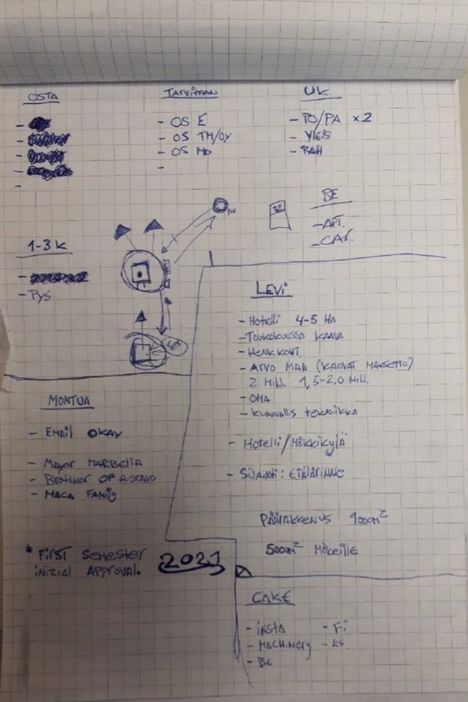 OSTA
TARVITAAN
- OS E
- OS TM/OY
- OS MD
UK
- TO/PA x2
- YLEIS
- RAH
BE
- ART.
- CAT.
1-3 K
- Pys
LEVI
- Hotelli 4-5 HA
- TOUKOKUUSSA KAAVA
- HENK.KOHT.
- ARVO MAA (KAAVAT MAKSETTU)
2 MILJ. 1,5-2,0 MILJ.
- OMA
- KUNNALLIS TEKNIIKKA
- Hotelli/Mökkikylä
- SIJAINTI: ETELÄRINNE
PÄÄRAKENNUS 9000m²
5000m² MÖKEILLE
MONTUA
- EMAIL OKAY
- MAYOR MARBELLA
- BROTHER OF
- MACA FAMILY
* FIRST SEMESTER 2021
INITIAL APPROVAL.
CAKE
- INSTA - Fi
- MACHINERY - ES